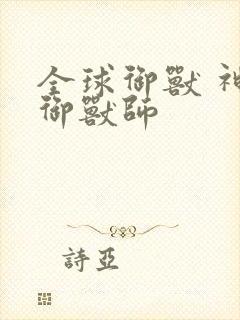 全球御獸 神
御獸師
詩亞